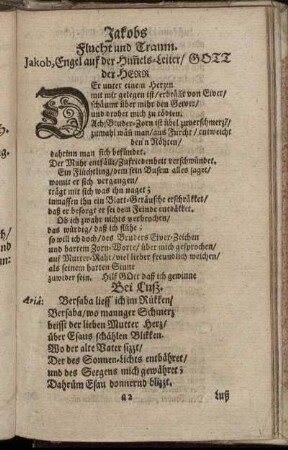 Jakobs
Flucht und Traum.
Jakob, Engel auf der Him̃els-Leiter/ GOTT
der HERR
DEr unter einem Herzn
mit mir gelegen ist/erbrānt von Eiver/
schāumt über mihr den Geiver/
und drohet mich zu tödten.
Ach-Bruder-Zorn ist übel zuverschmerz?/
zumahl wān man/aus Furcht/ entweicht
den'n Nöhten/
dahrinn man sich befündet.
Der Muht entfällt/Zufriedenheit verschwündet.
Ein Flüchtling/dem sein Busem alles saget/
womit er sich vergangen/
trägt mit sich was ihn naget;
inmassen ihn ein Blatt-Geräusche erschrākket/
daß er besorgt er sei dem Feinde entdäkket.
Ob ich zwahr nichts verbrochen/
das würdig/ daß ich flühe;
so will ich doch/des Bruders Eiver-Zeichen
und hartem Zorn-Worte/über mich gesprochen/
auf Mutter-Raht/viel lieber freundlich weichen/
als seinem harten Sinne
zuwider sein. Hilf GOtt daß ich gewinne
Bei Luß.
Ariâ: Bersaba liess' ich im Rükken/
Bersaba/wo mannger Schmerz
beisst der lieben Mutter Herz/
über Esaus schählen Blikken.
Wo der alte Vater sizzt/
Der des Sonnen-Lichts entbähret/
und des Seegens mich gewähret;
Dahrüm Esau donnernd blizzt.
G 2
Luß